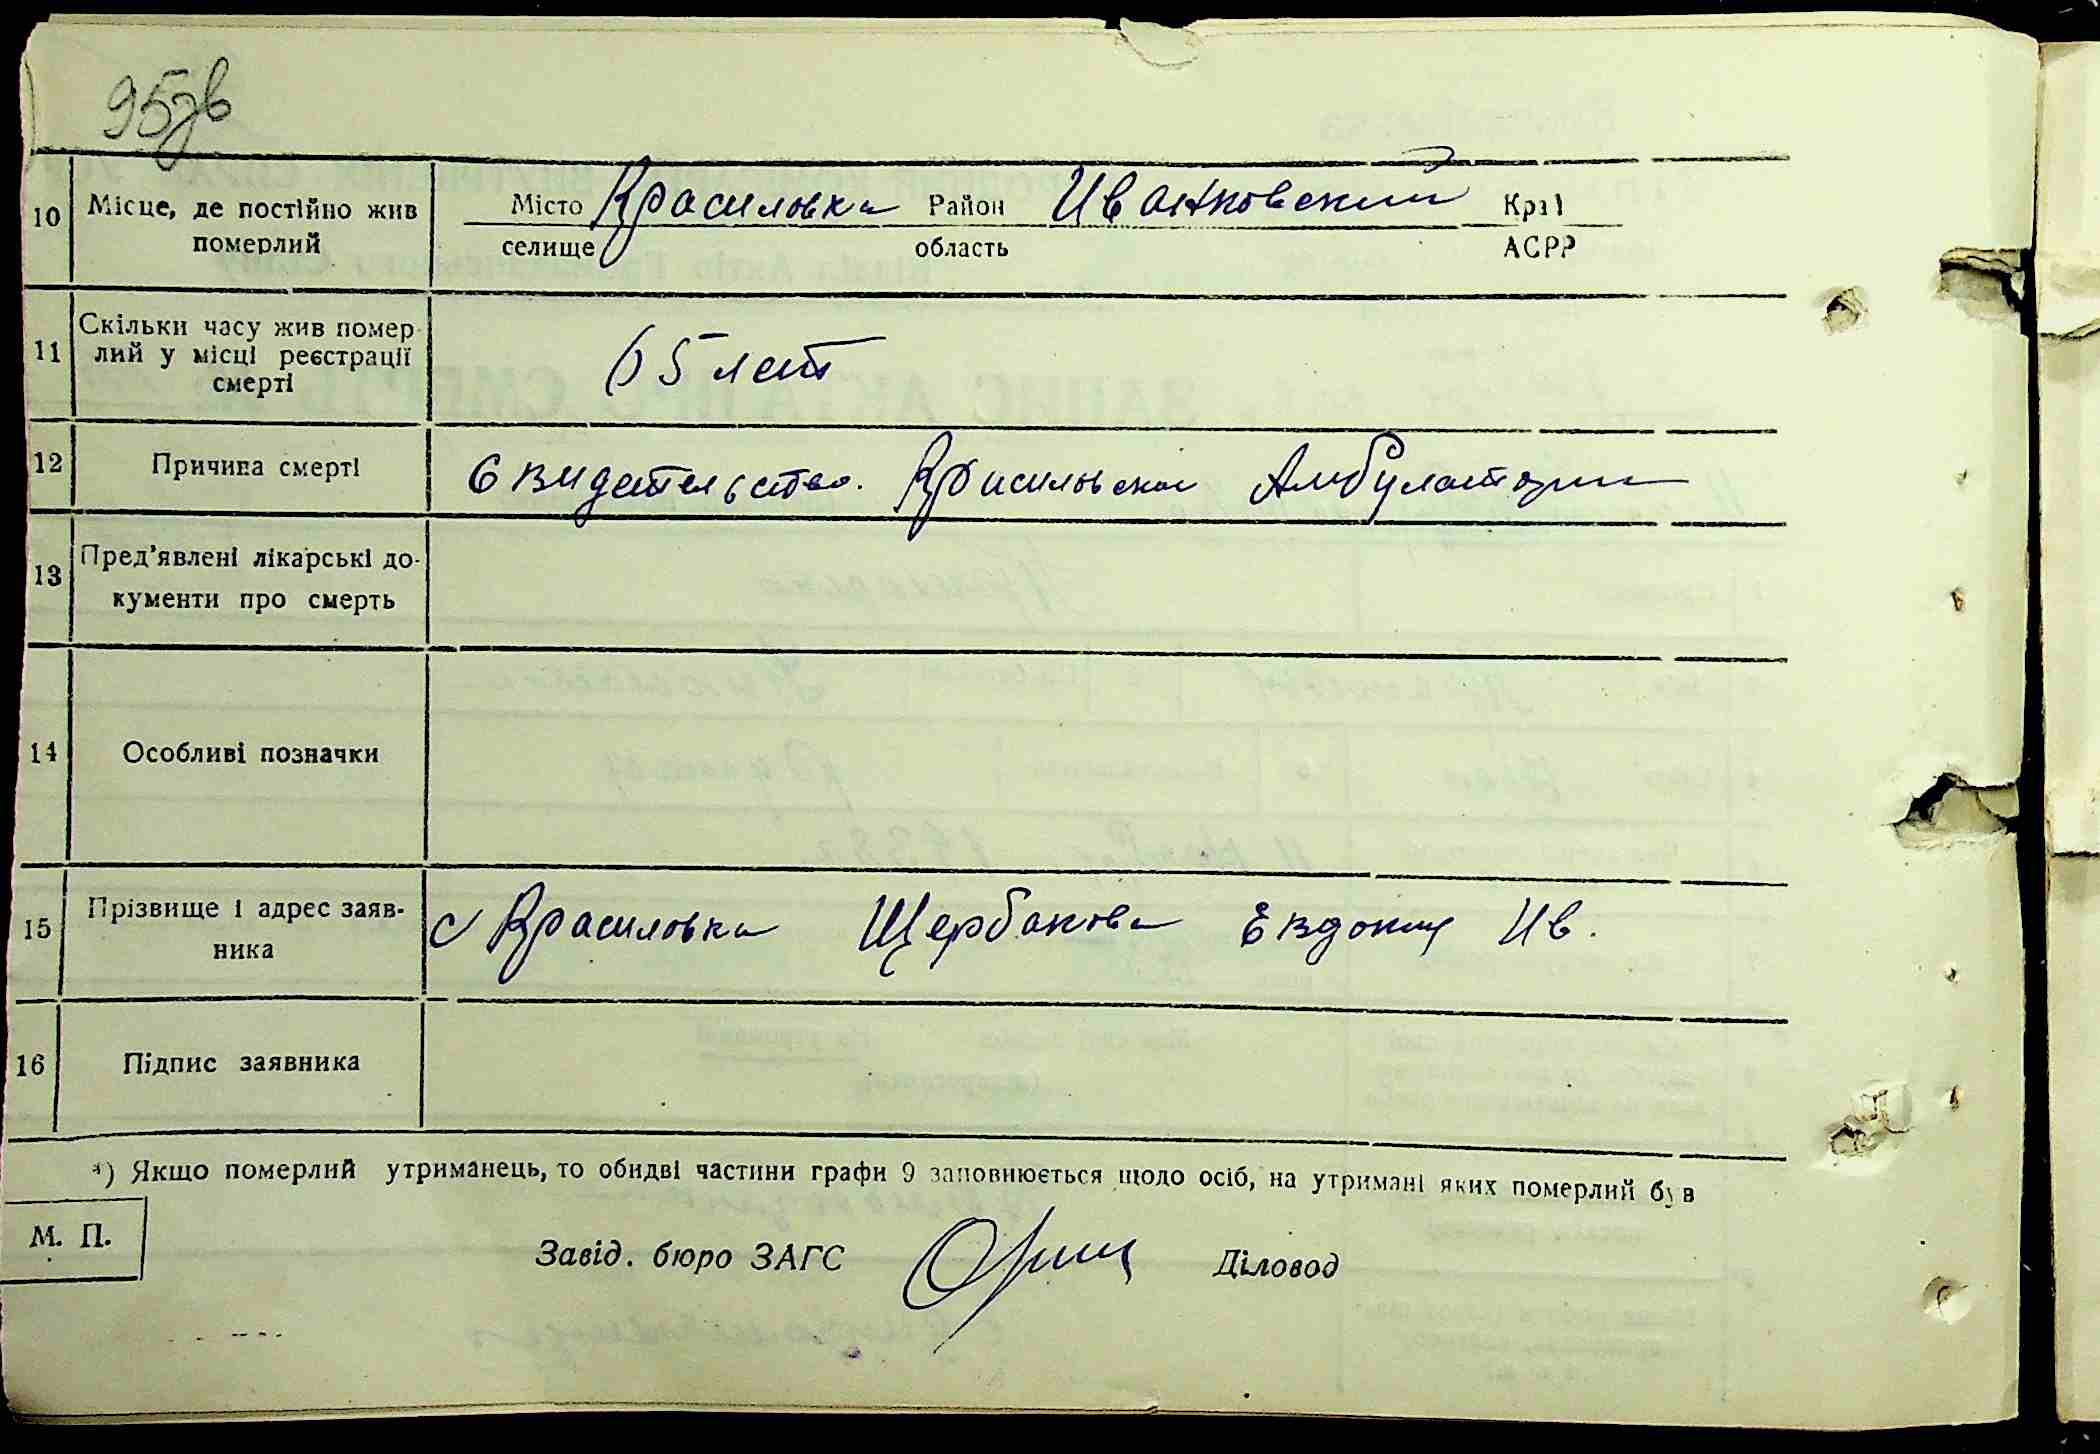 95зв
10 Місце, де постійно жив Місто Красиловка Район Иванковский Край
померлий селище область АСРР
11 Скільки часу жив помер-
лий у місці реєстрації 65 лет
смерті
12 Причина смерті Свидетельство. Красиловской Амбулатории
13 Пред'явлені лікарські до-
кументи про смерть
14 Особливі позначки
15 Прізвище і адрес заяв- с Красиловка Щербакова Евдокия Ив.
ника
16 Підпис заявника
*) Якщо померлий утриманець, то обидві частини графи 9 заповнюється щодо осіб, на утримані яких померлий був
М. П.
Завід. бюро ЗАГС Діловод